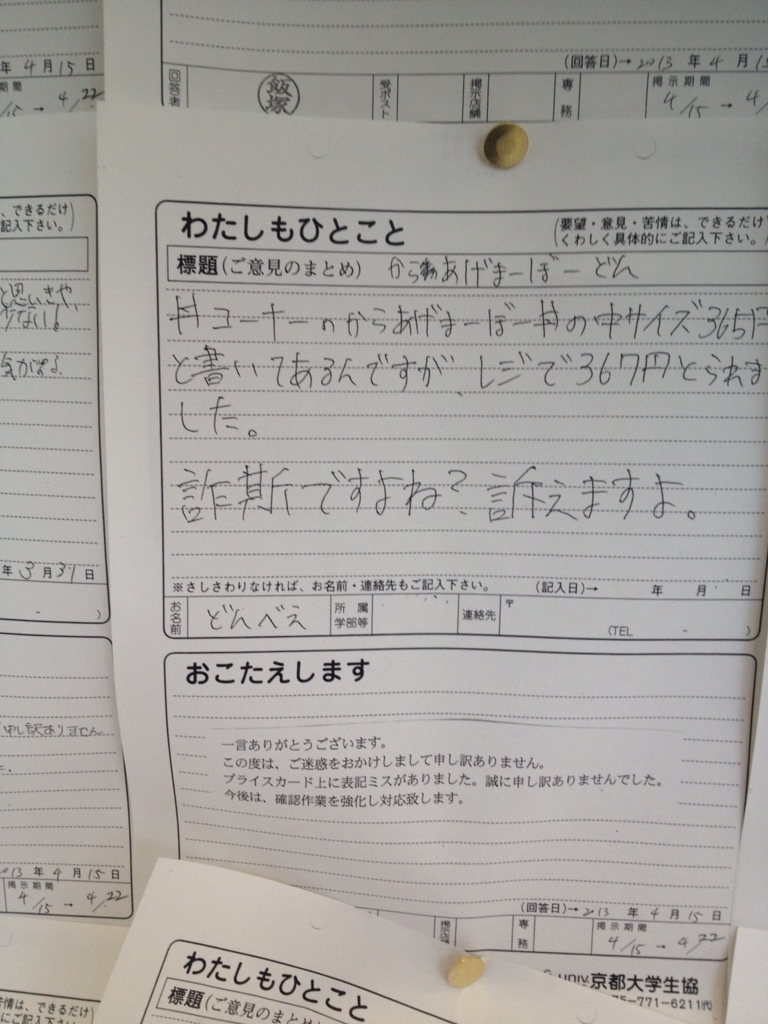 (回答日)→2013 年 4 月 15
年 4 月 15 日
回答者
飯塚
受ポスト
掲示店舗
専務
掲示期間
4/15 → 4/
期間
/15 → 4/22
、できるだけ
記入下さい。)
と思いきや、
少ない!
年 3 月 31 日
- )
申し訳ありません
2013 年 4 月 15 日
掲示期間
4/15 → 4/22
わたしもひとこと
(要望・意見・苦情は、できるだけ
くわしく具体的にご記入下さい。)
標題(ご意見のまとめ) からあげまーぼーどん
丼コーナーのからあげまーぼー丼の中サイズ365円
と書いてあるんですが、レジで367円とられま
した。
詐斯ですよね?訴えますよ。
※さしさわりなければ、お名前・連絡先もご記入下さい。 (記入日)→ 年 月 日
お名前 どんべえ 所属学部等 連絡先 〒
(TEL - )
おこたえします
一言ありがとうございます。
この度は、ご迷惑をおかけしまして申し訳ありません。
プライスカード上に表記ミスがありました。誠に申し訳ありませんでした。
今後は、確認作業を強化し対応致します。
(回答日)→2013 年 4 月 15 日
掲示店舗
専務
掲示期間
4/15 → 4/22
univ.京都大学生協
75-771-6211㈹
わたしもひとこと
標題(ご意見のまとめ)
苦情は、できるだけ
にご記入下さい。)